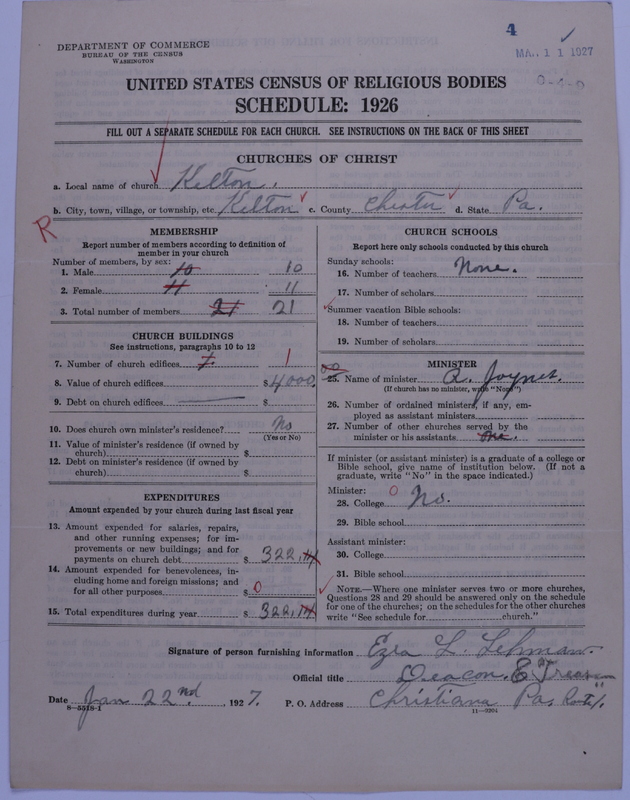 4
MA. 11 1927
0-4-0
DEPARTMENT OF COMMERCE
BUREAU OF THE CENSUS
WASHINGTON
UNITED STATES CENSUS OF RELIGIOUS BODIES
SCHEDULE: 1926
FILL OUT A SEPARATE SCHEDULE FOR EACH CHURCH. SEE INSTRUCTIONS ON THE BACK OF THIS SHEET
CHURCHES OF CHRIST
a. Local name of church Kelton.
b. City, town, village, or township, etc. Kelton c. County Chester d. State Pa.
R
MEMBERSHIP
Report number of members according to definition of
member in your church
Number of members, by sex:
1. Male 10 10
2. Female 11 11
3. Total number of members 21 21
CHURCH BUILDINGS
See instructions, paragraphs 10 to 12
7. Number of church edifices 1 1
8. Value of church edifices $4000.
9. Debt on church edifices $
10. Does church own minister's residence? No
(Yes or No)
11. Value of minister's residence (if owned by
church) $
12. Debt on minister's residence (if owned by
church) $
EXPENDITURES
Amount expended by your church during last fiscal year
13. Amount expended for salaries, repairs,
and other running expenses; for im-
provements or new buildings; and for
payments on church debt $ 322.14
14. Amount expended for benevolences, in-
cluding home and foreign missions; and
for all other purposes $ 0
15. Total expenditures during year $ 322.14
CHURCH SCHOOLS
Report here only schools conducted by this church
Sunday schools:
16. Number of teachers None.
17. Number of scholars
Summer vacation Bible schools:
18. Number of teachers
19. Number of scholars
MINISTER
25. Name of minister A. Joynes.
(If church has no minister, write "None")
26. Number of ordained ministers, if any, em-
ployed as assistant ministers
27. Number of other churches served by the
minister or his assistants One.
If minister (or assistant minister) is a graduate of a college or
Bible school, give name of institution below. (If not a
graduate, write "No" in the space indicated.)
Minister:
28. College 0 No.
29. Bible school
Assistant minister:
30. College
31. Bible school
NOTE.—Where one minister serves two or more churches,
Questions 28 and 29 should be answered only on the schedule
for one of the churches; on the schedules for the other churches
write "See schedule for church."
Signature of person furnishing information Ezra L. Lehman.
Official title Deacon & Treas
Date Jan 22nd, 1927. P. O. Address Christiana Pa, Route 1.
8-5518-1 11-9294